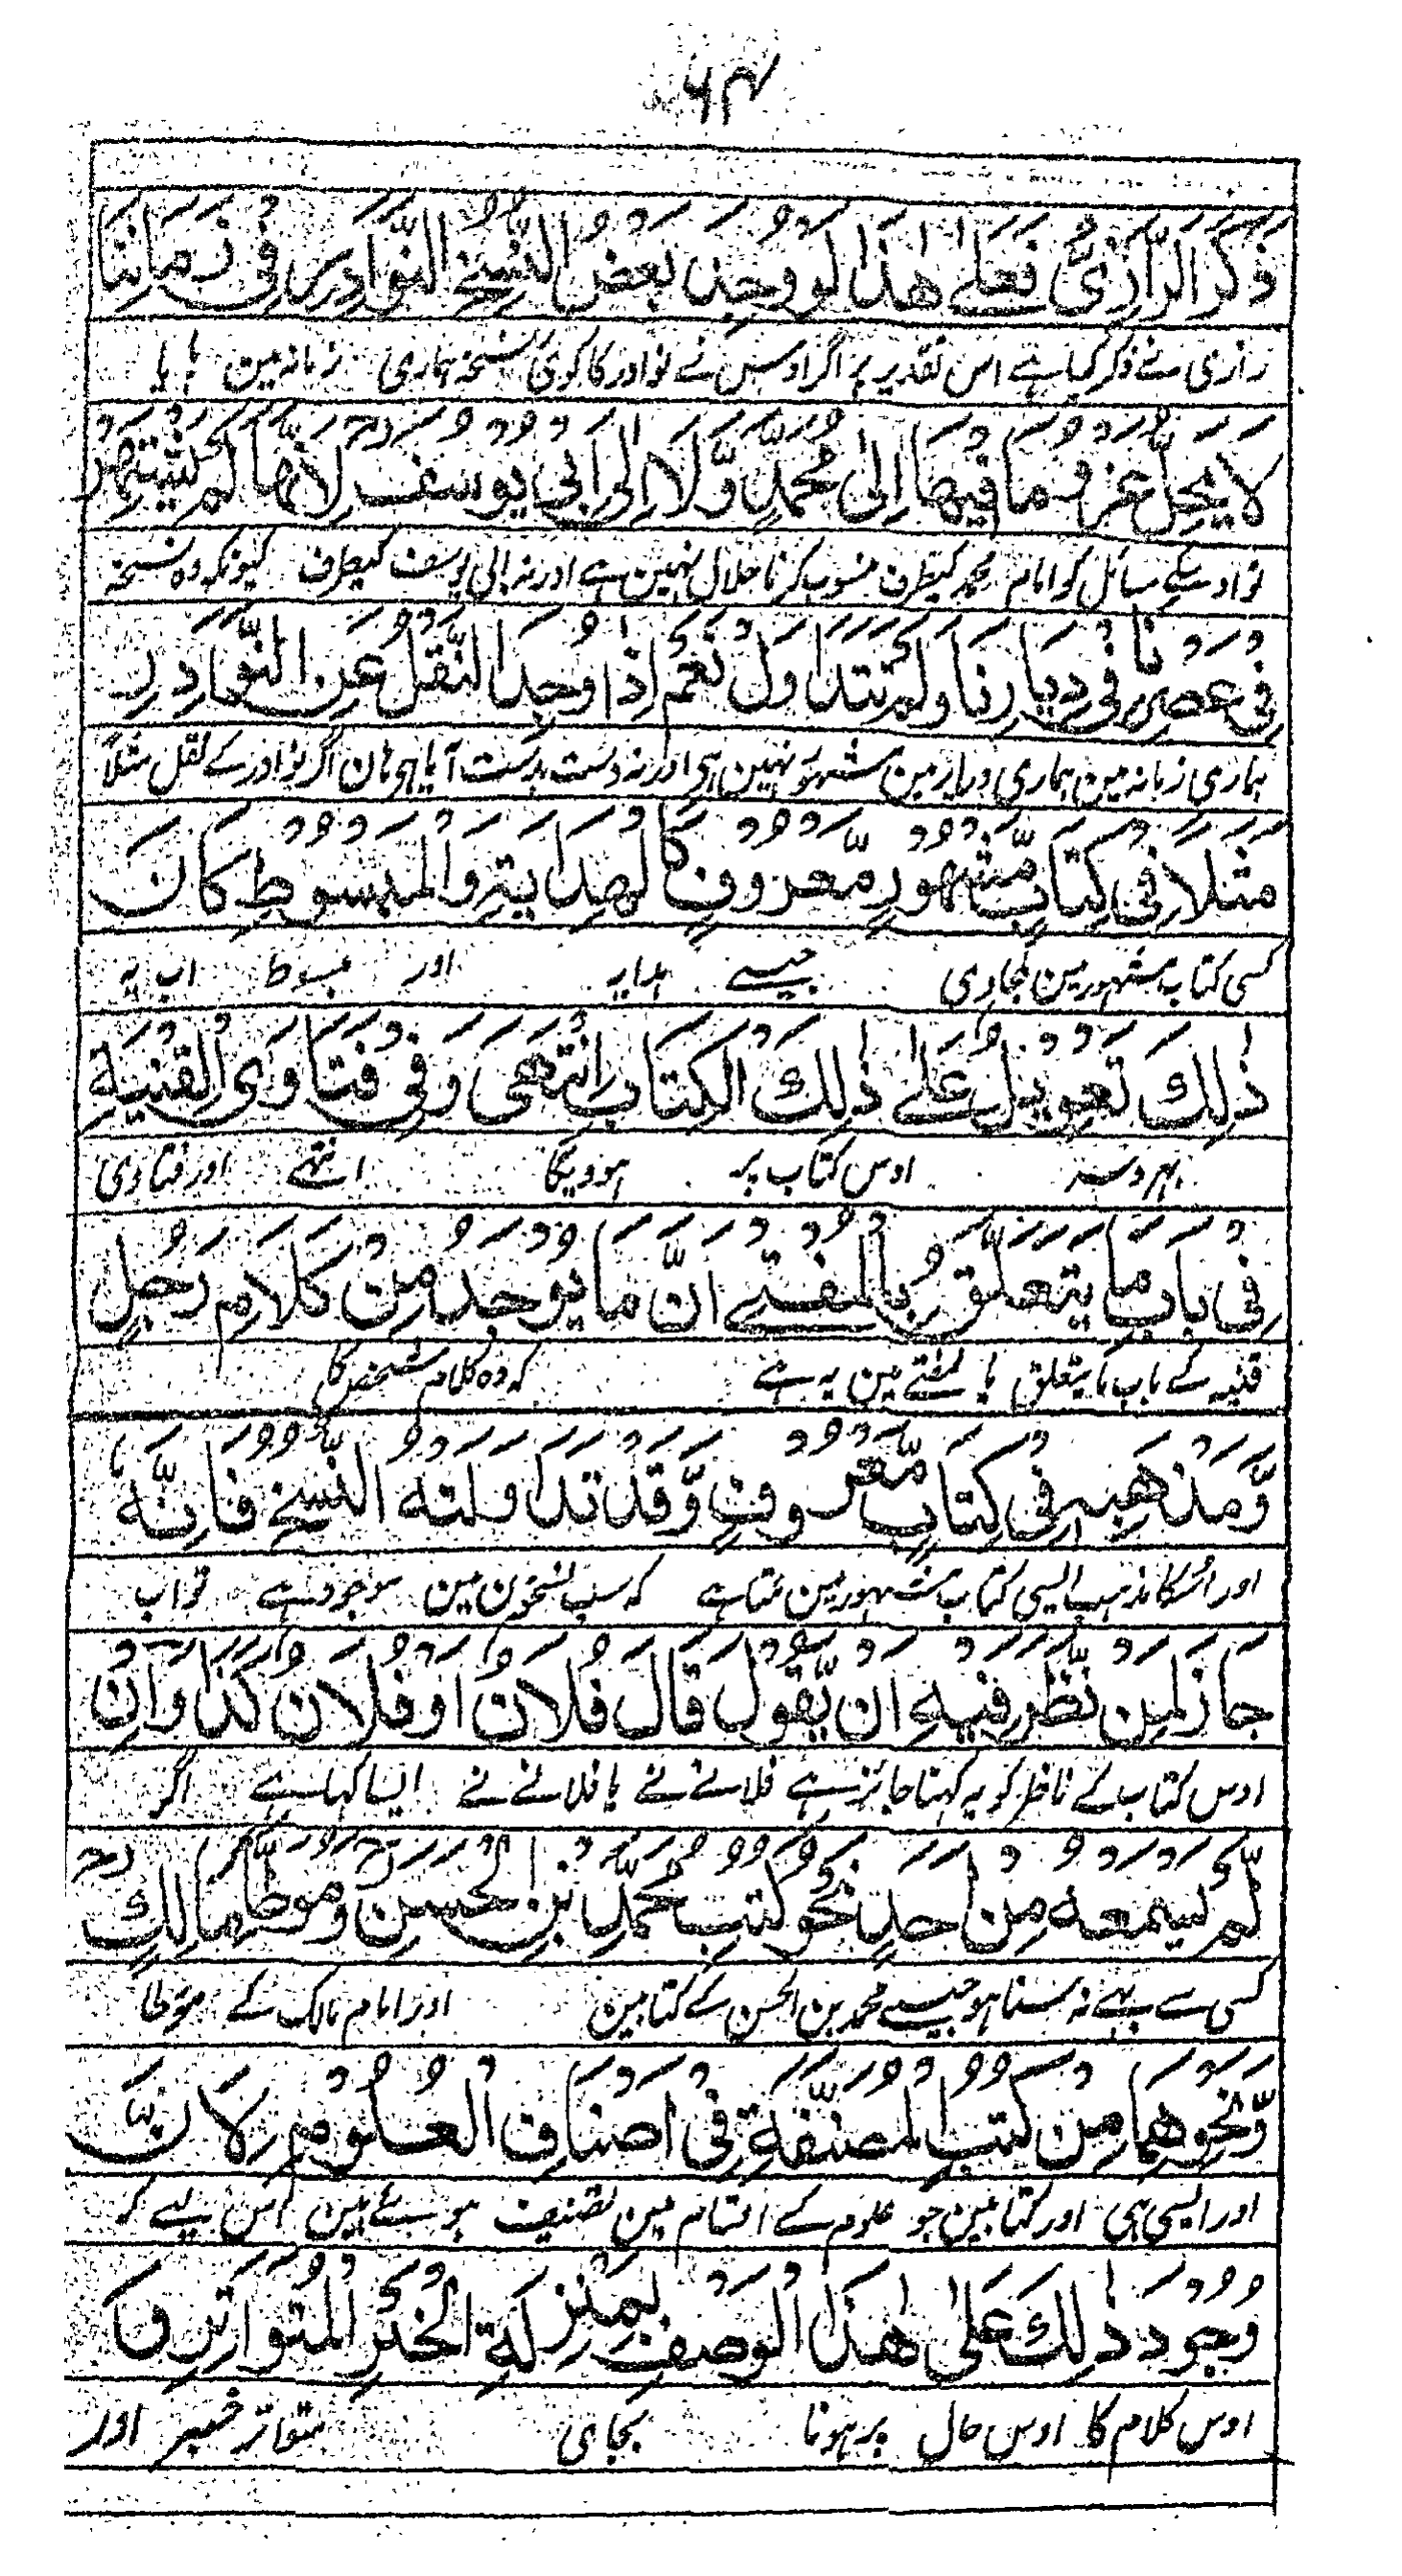 ۶۴
ذَكَرَ الرَّازِیُّ فَعَلٰے هٰذَا لَوْ وُجِدَ بَعْضُ النُّسَخِ النَّوَادِرِ فِی زَمَانِنَا
رازی نے ذکر کیا ہے اس تقدیر پر اگر اوس نے نوادر کا کوئی نسخہ ہماری زمانہ مین پایا
لَا یَحِلُّ عَزْوُ مَا فِیْهَا اِلٰی مُحَمَّدٍ وَّلَا اِلٰی اَبِیْ یُوْسُفَ لِاَنَّهَا لَمْ تَشْتَهِرْ
نوادر کے مسائل کو امام محمد کیطرف منسوب کرنا حلال نہین ہے اور نہ ابی یوسف کیطرف کیونکہ وہ نسخہ
فِیْ عَصْرِنَا فِیْ دِیَارِنَا وَلَمْ تَتَدَاوَلْ نَعَمْ اِذَا وُجِدَ النَّقْلُ عَنِ النَّوَادِرِ
ہماری زمانہ مین ہماری دیار مین مشہور نہین ہی اور نہ دست بدست آیا ہی ہان اگر نوادر کے نقل مثلاً
مَثَلًا فِیْ كِتَابٍ مَّشْهُوْرٍ مَّعْرُوْفٍ كَالْهِدَایَةِ وَالْمَبْسُوْطِ كَانَ
کسی کتاب مشہور مین پاوی جیسے ہدایہ اور مبسوط اب یہ
ذٰلِكَ تَعْوِیْلٌ عَلٰے ذٰلِكَ الْكِتَابِ اِنْتَهٰی وَفِیْ فَتَاوَی الْقُنْیَةِ
بہروسہ اوس کتاب پر ہوویگا انتہے اور فتاوی
فِیْ بَابِ مَا یَتَعَلَّقُ بِالْمُفْتِے اَنَّ مَا یُوْجَدُ مِنْ كَلَامِ رَجُلٍ
قنیہ کے باب ما یتعلق بالمفتے مین یہ ہے کہ وہ کلام شخص کا
وَّمَذْهَبِهٖ فِیْ كِتَابٍ مَّعْرُوْفٍ وَّقَدْ تَدَاوَلَتْهُ النُّسَخُ فَاِنَّهٗ
اور اسکا مذہب ایسی کتاب مشہور مین ملتا ہے کہ سب نسخون مین موجود ہے تو اب
جَازَ لِمَنْ نَّظَرَ فِیْهِ اَنْ یَّقُوْلَ قَالَ فُلَانٌ اَوْ فُلَانٌ كَذَا وَاِنْ
اوس کتاب کے ناظر کو یہ کہنا جائز ہے فلانے نے یا فلانے نے ایسا کہا ہے اگر
لَّمْ یَسْمَعْهُ مِنْ اَحَدٍ نَحْوُ كُتُبِ مُحَمَّدِ بْنِ الْحَسَنِ وَمُوَطَّا مَالِكٍ
کسی سے بہے نہ سنا ہو جیسے محمد بن الحسن کے کتابین اور امام مالک کے موطا
وَّنَحْوِهِمَا مِنْ كُتُبِ الْمُصَنَّفَةِ فِیْ اَصْنَافِ الْعُلُوْمِ لِاَنَّ
اور ایسی ہی اور کتابین جو علوم کے اقسام مین تصنیف ہوئے ہین اس لیے کہ
وُجُوْدَ ذٰلِكَ عَلٰی هٰذَا الْوَصْفِ بِمَنْزِلَةِ الْخَبَرِ الْمُتَوَاتِرِ وَ
اوس کلام کا اوس حال پر ہونا بجای متواتر خبر اور